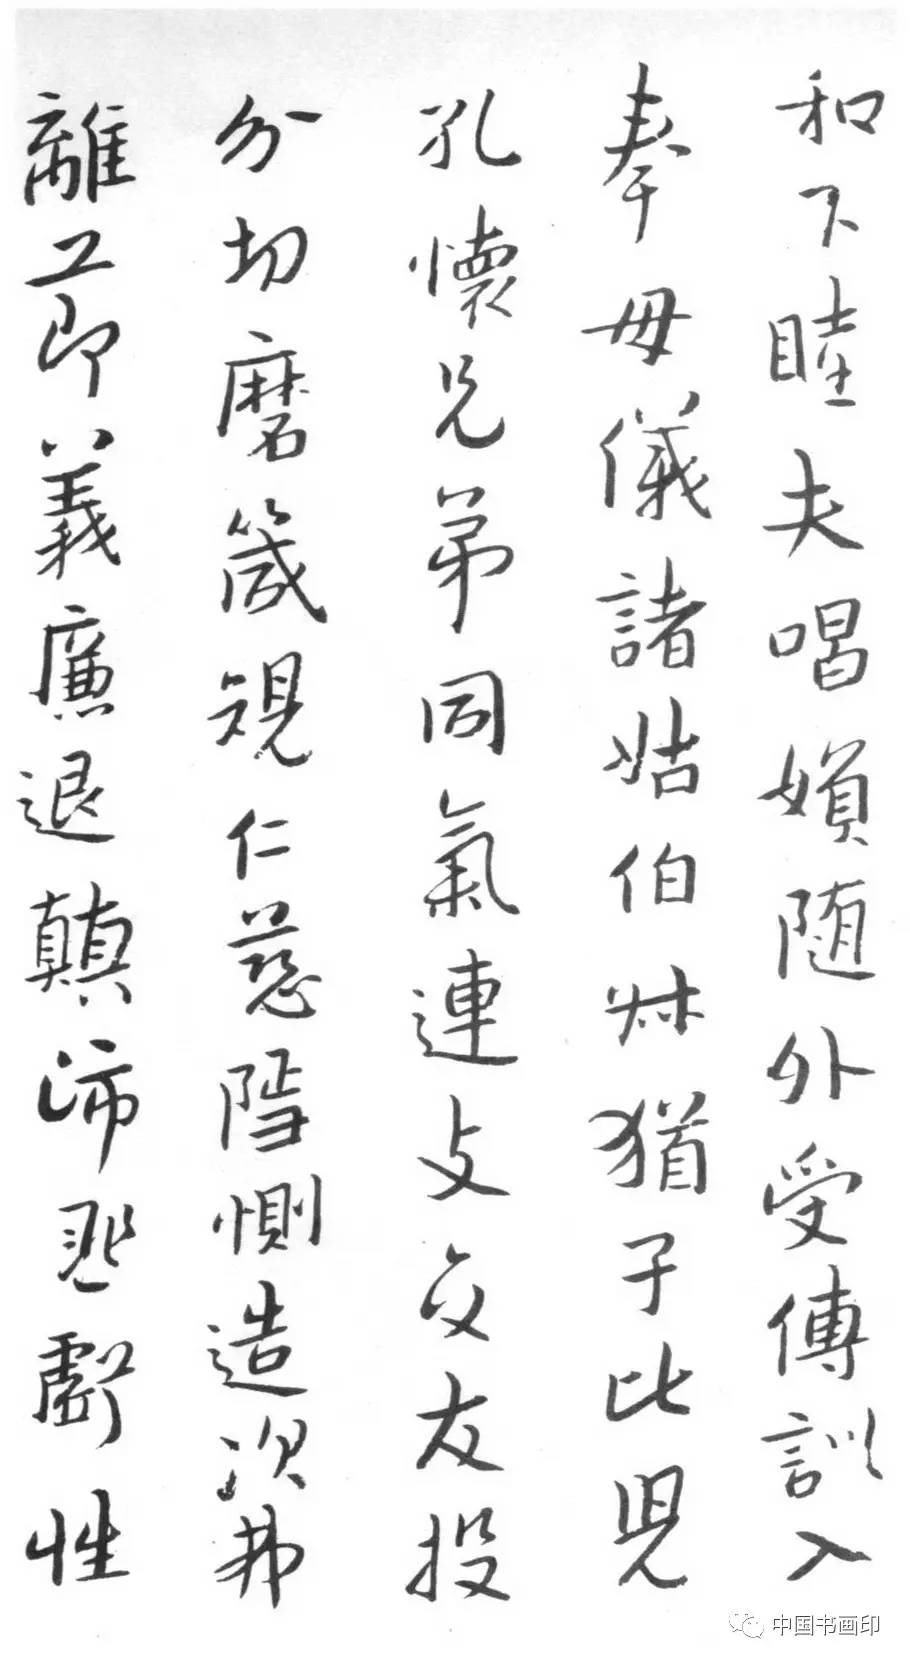 和下睦夫唱媍随外受傅訓入
奉母儀諸姑伯叔猶子比兒
孔懷兄弟同氣連支交友投
分切磨箴規仁慈隱惻造次弗
離節義廉退顛沛匪虧性
中国书画印